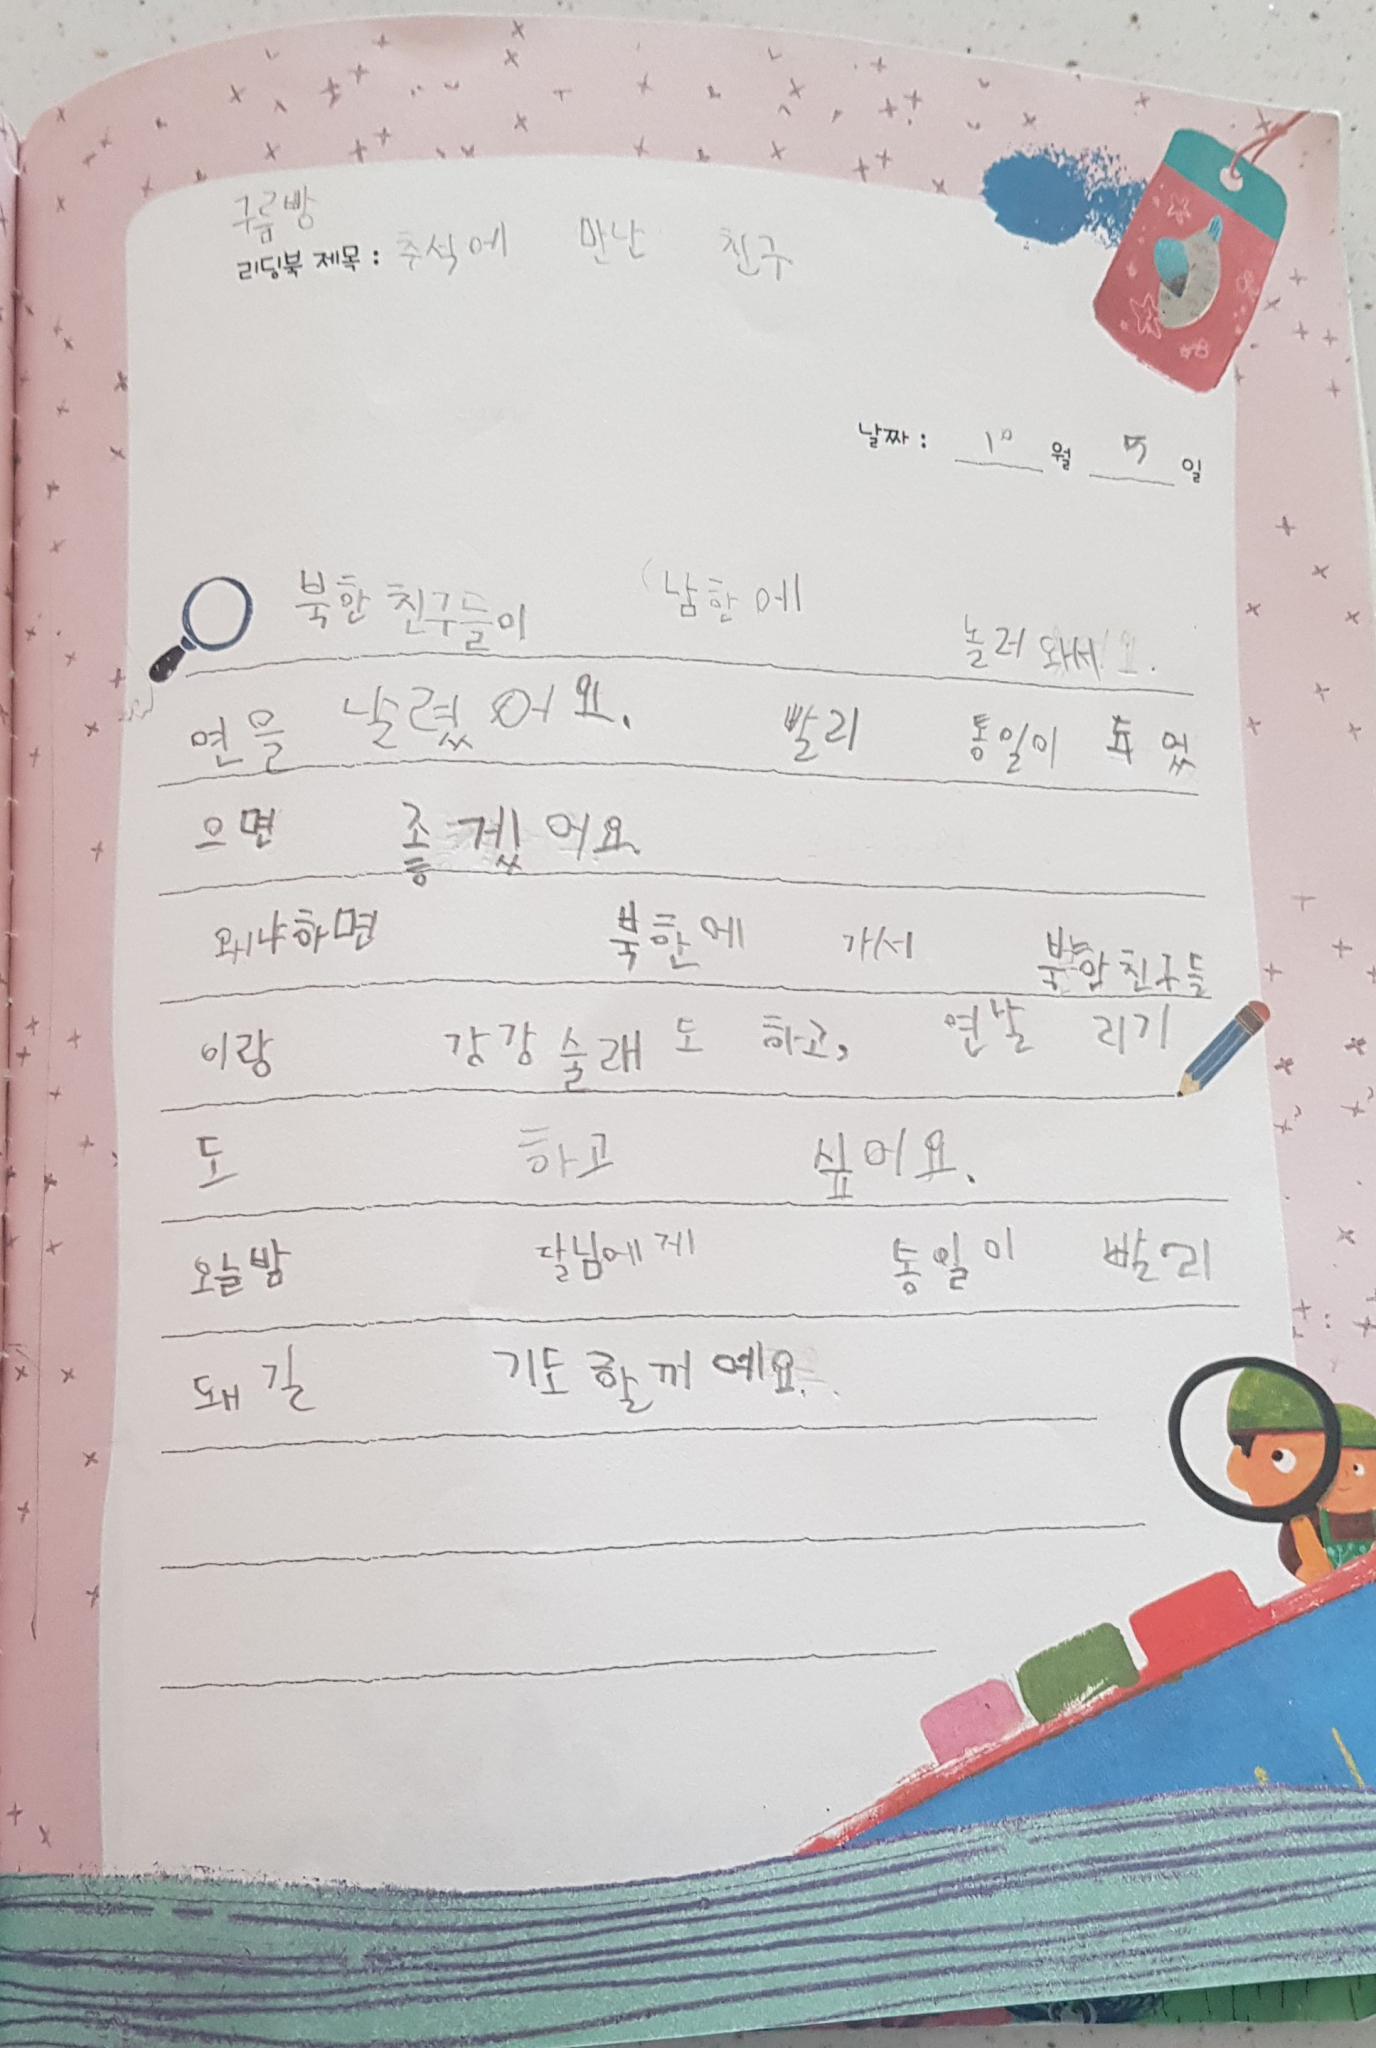 구름빵
리딩북 제목 : 추석에 만난 친구
날짜 : 10 월 5 일
북한친구들이 남한에 놀러 와서
연을 날렸어요. 빨리 통일이
으면 좋겠어요.
왜냐하면 북한에 가서 친구들
이랑 강강술래도 하고, 연날리기
도 하고 싶어요.
오늘밤 달님에게 통일이 빨리
돼길 기도할꺼예요.